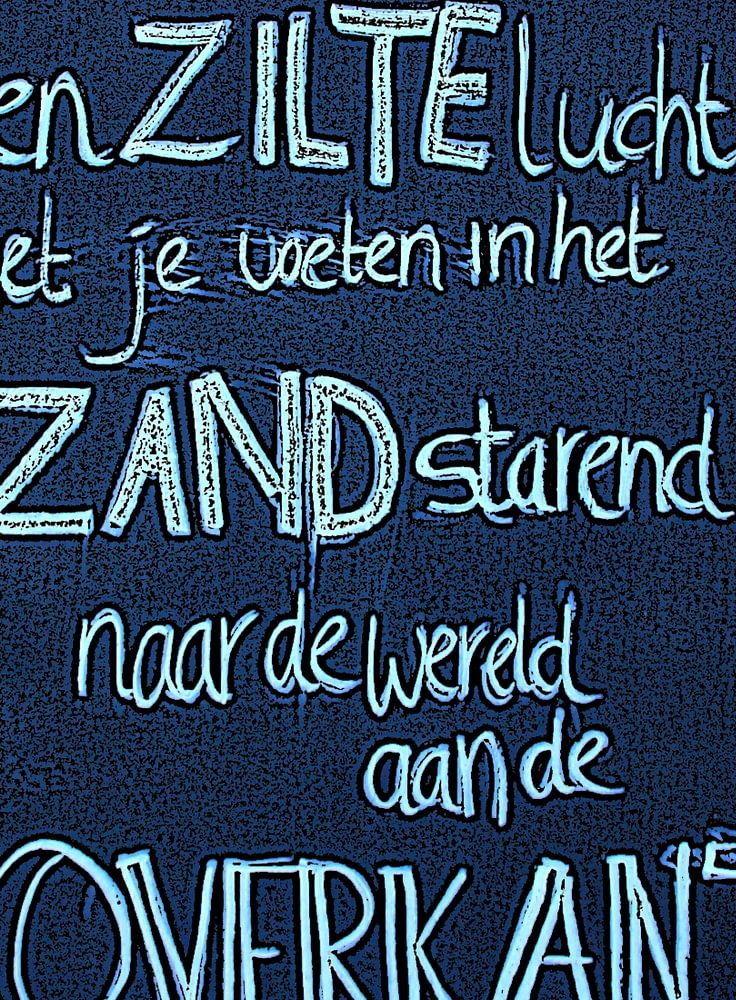 en ZILTE lucht
et je voeten in het
ZAND starend
naar de wereld
aan de
OVERKANT